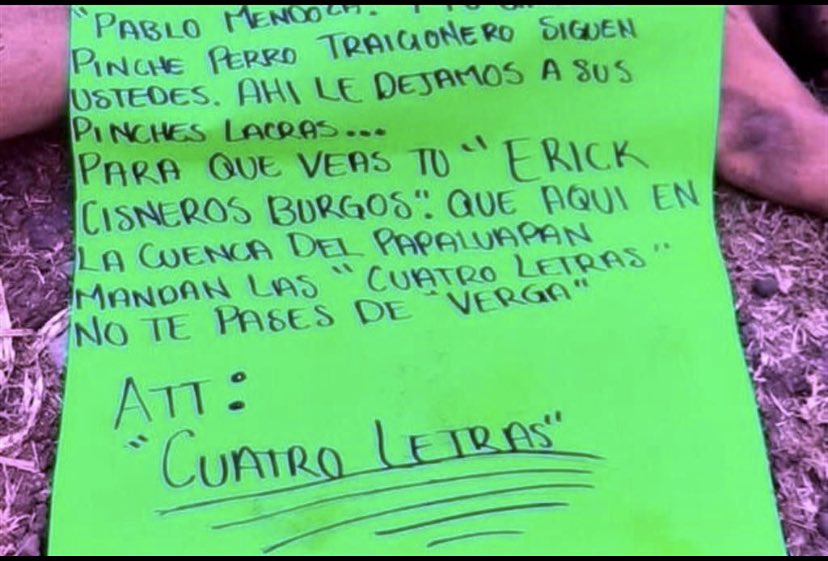 "PABLO MENDOZA. Y TU
PINCHE PERRO TRAICIONERO SIGUEN
USTEDES. AHI LE DEJAMOS A SUS
PINCHES LACRAS...
PARA QUE VEAS TU "ERICK
CISNEROS BURGOS". QUE AQUI EN
LA CUENCA DEL PAPALUAPAN
MANDAN LAS "CUATRO LETRAS"
NO TE PASES DE "VERGA"
ATT:
"CUATRO LETRAS"